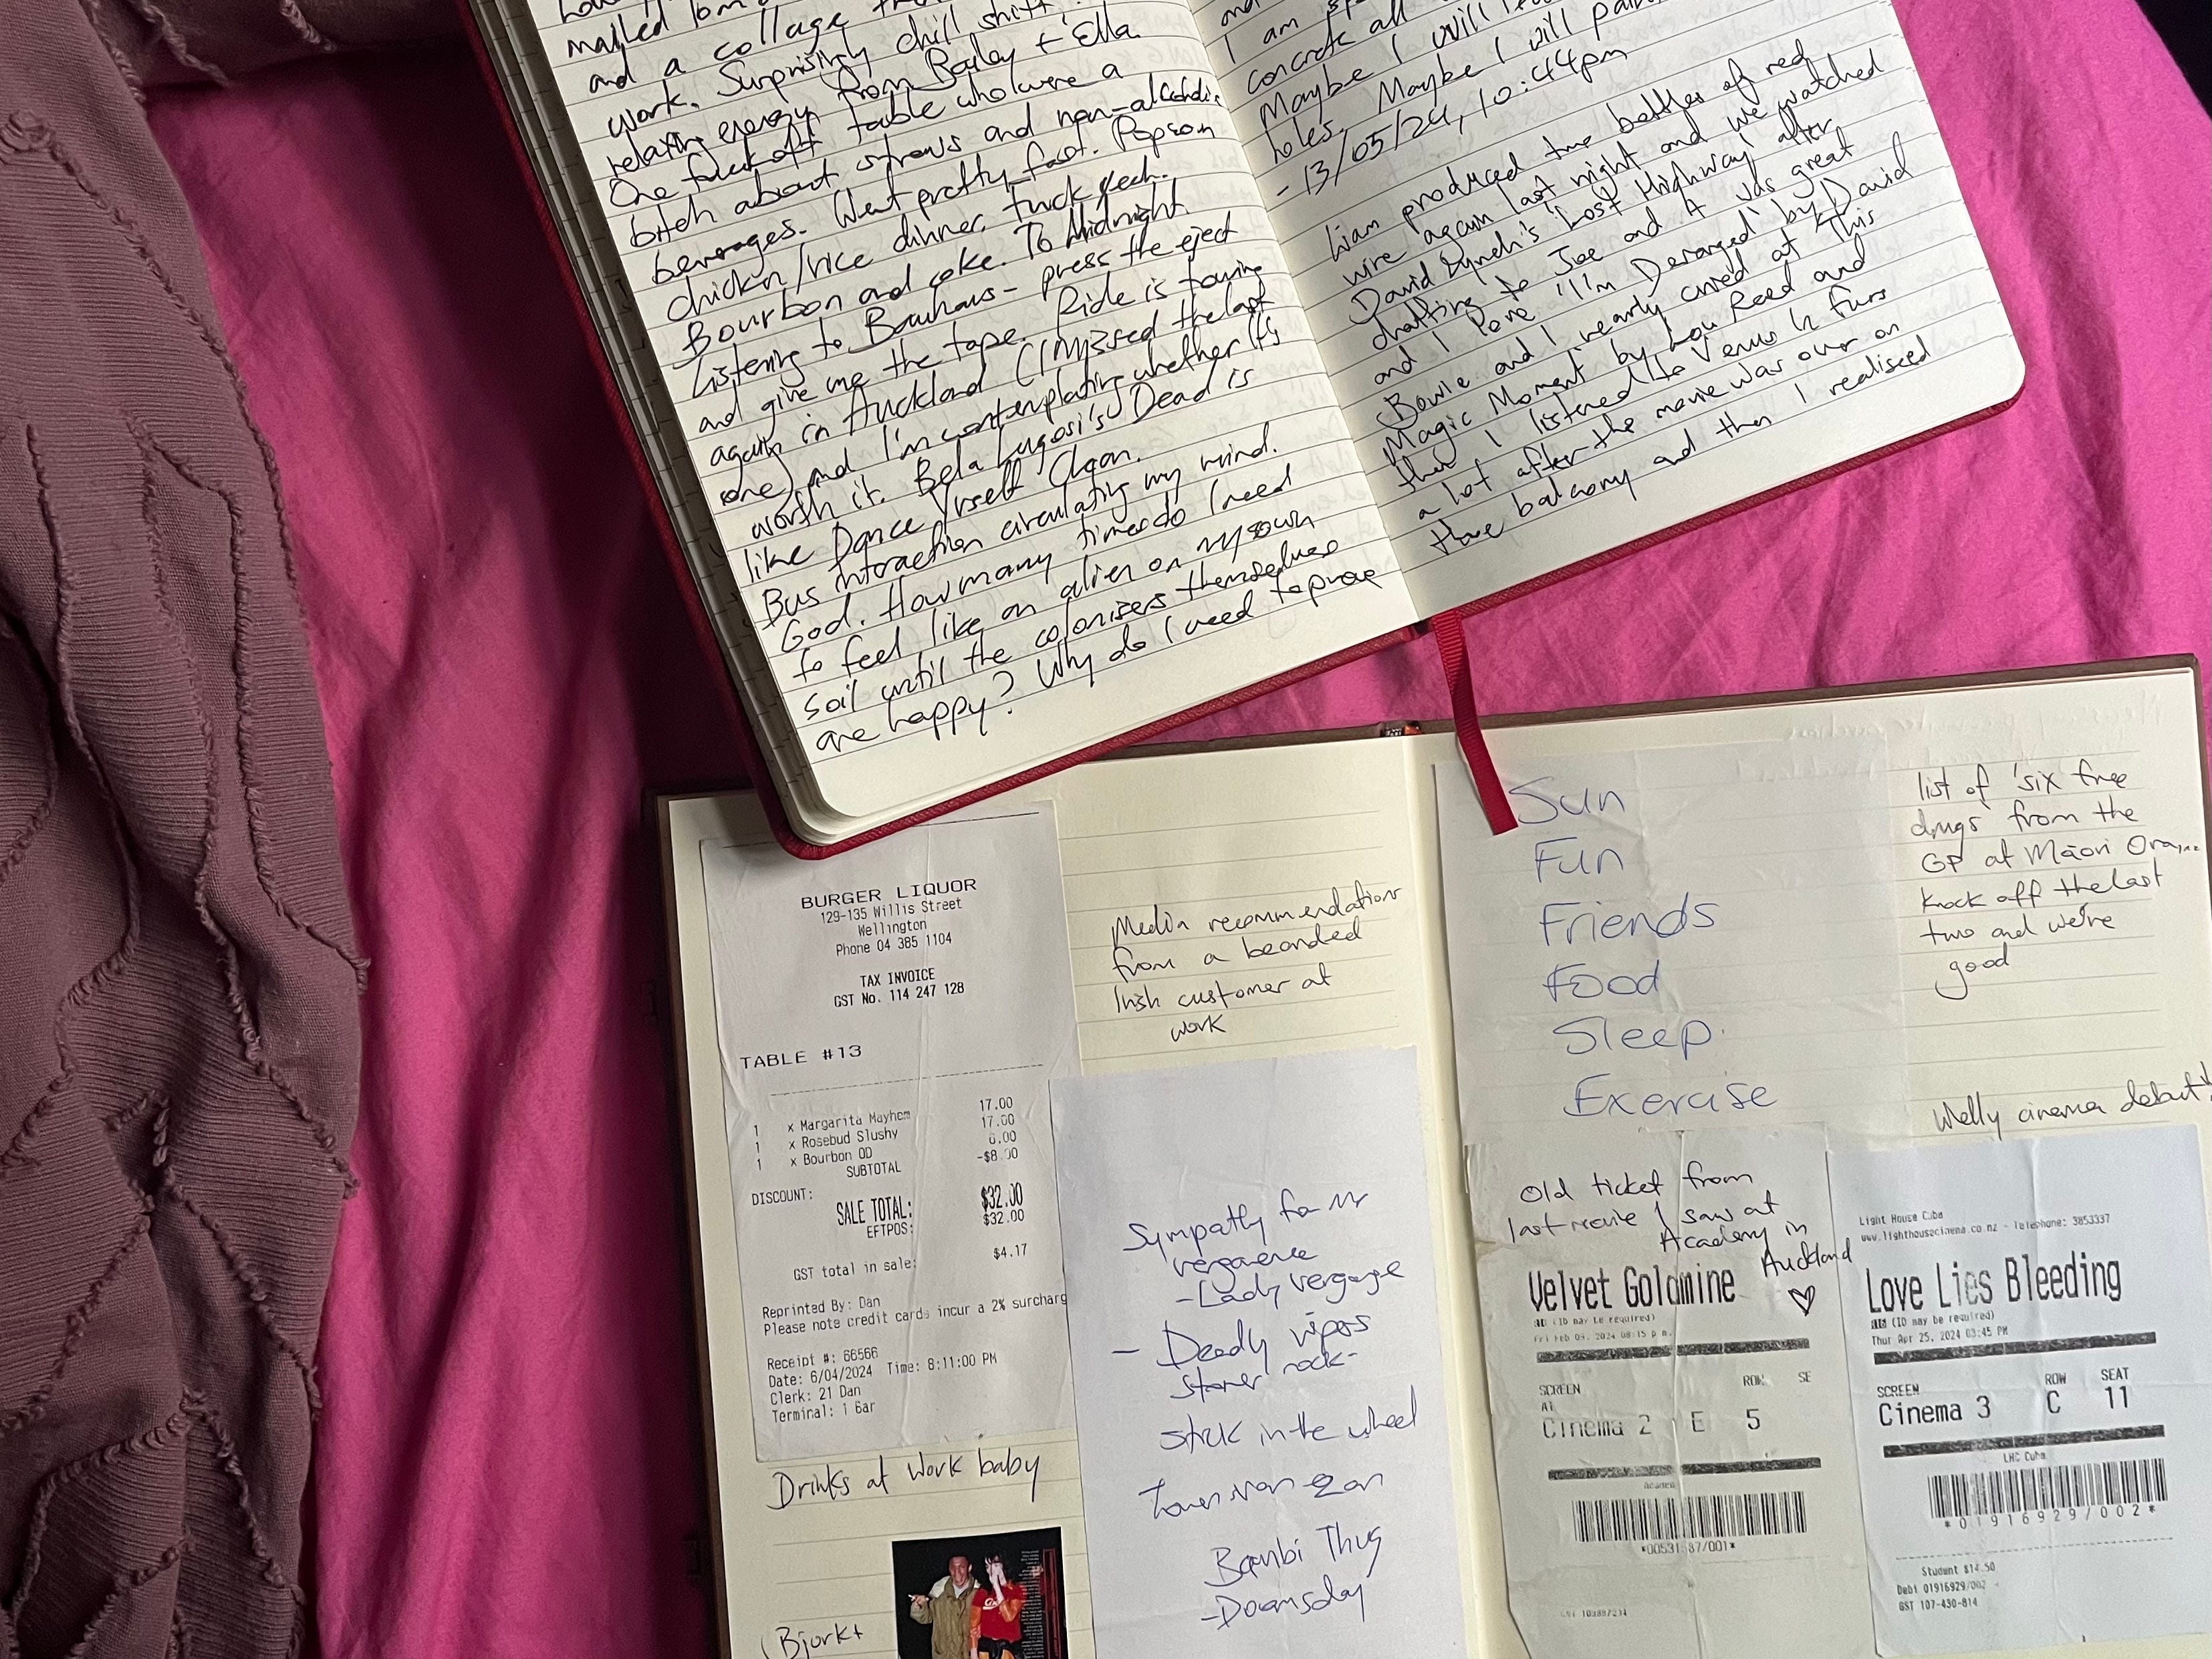 mailed
and a collage
work. Surprisingly chill shift.
relaxing energy from Bailey + Ella.
One fuck off table who were a
bitch about straws and non-alcoholic
beverages. Went pretty fast. Popcorn
chicken/rice dinner, fuck yeah.
Bourbon and coke. To Midnight.
Listening to Bauhaus - press the eject
and give me the tape. Ride is touring
again in Auckland (I missed the last
one) and I'm contemplating whether it's
worth it. Bela Lugosi's Dead is
like Dance Yrself Clean.
Bus interaction circulating my mind.
God. How many times do I need
to feel like an alien on my own
soil until the colonisers themselves
are happy? Why do I need to prove
and
I am
concrete all
Maybe I will
holes. Maybe I will
- 13/05/24, 10:44pm
Liam produced two bottles of red
wine again last night and we watched
David Lynch's 'Lost Highway' after
chatting to Joe and A was great
and I love 'I'm Deranged' by David
Bowie and I nearly cried at This
Magic Moment by Lou Reed and
then I listened to Venus in Furs
a lot after the movie was over on
the balcony and then I realised
BURGER LIQUOR
129-135 Willis Street
Wellington
Phone 04 385 1104
TAX INVOICE
GST No. 114 247 128
TABLE #13
1 x Margarita Mayhem 17.00
1 x Rosebud Slushy 17.00
1 x Bourbon OD 6.00
SUBTOTAL
DISCOUNT: -$8.00
SALE TOTAL: $32.00
EFTPOS: $32.00
GST total in sale: $4.17
Reprinted By: Dan
Please note credit cards incur a 2% surcharg
Receipt #: 66566
Date: 6/04/2024 Time: 8:11:00 PM
Clerk: 21 Dan
Terminal: 1 Bar
Drinks at work baby
(Bjork +
Media recommendations
from a bearded
Irish customer at
work
Sympathy for Mr
vengeance
- Lady vengeance
- Deadly vipers
stoner rock-
stick in the wheel
Bambi Thug
- Doomsday
Sun
Fun
Friends
Food
Sleep.
Exercise
list of 'six free
drugs' from the
GP at Māori Ora,
knock off the last
two and we're
good
Welly cinema debut!
Old ticket from
last movie I saw at
Academy in
Auckland
Velvet Goldmine
(ID may be required)
Fri Feb 09, 2024 08:15 p.m.
SCREEN ROW SE
Cinema 2 E 5
Academ
*00531 87/001*
Light House Cuba
www.lighthousecinema.co.nz - Telephone: 3853337
Love Lies Bleeding
(ID may be required)
Thur Apr 25, 2024 03:45 PM
SCREEN ROW SEAT
Cinema 3 C 11
LHC Cuba
*01916929/002*
Student $14.50
Debi 01916929/002
GST 107-430-814